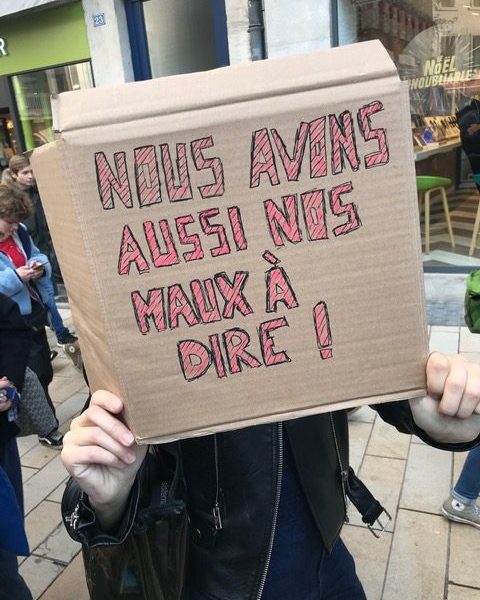 23
NOËL
INOUBLIABLE
NOUS AVONS
AUSSI NOS
MAUX À
DIRE !